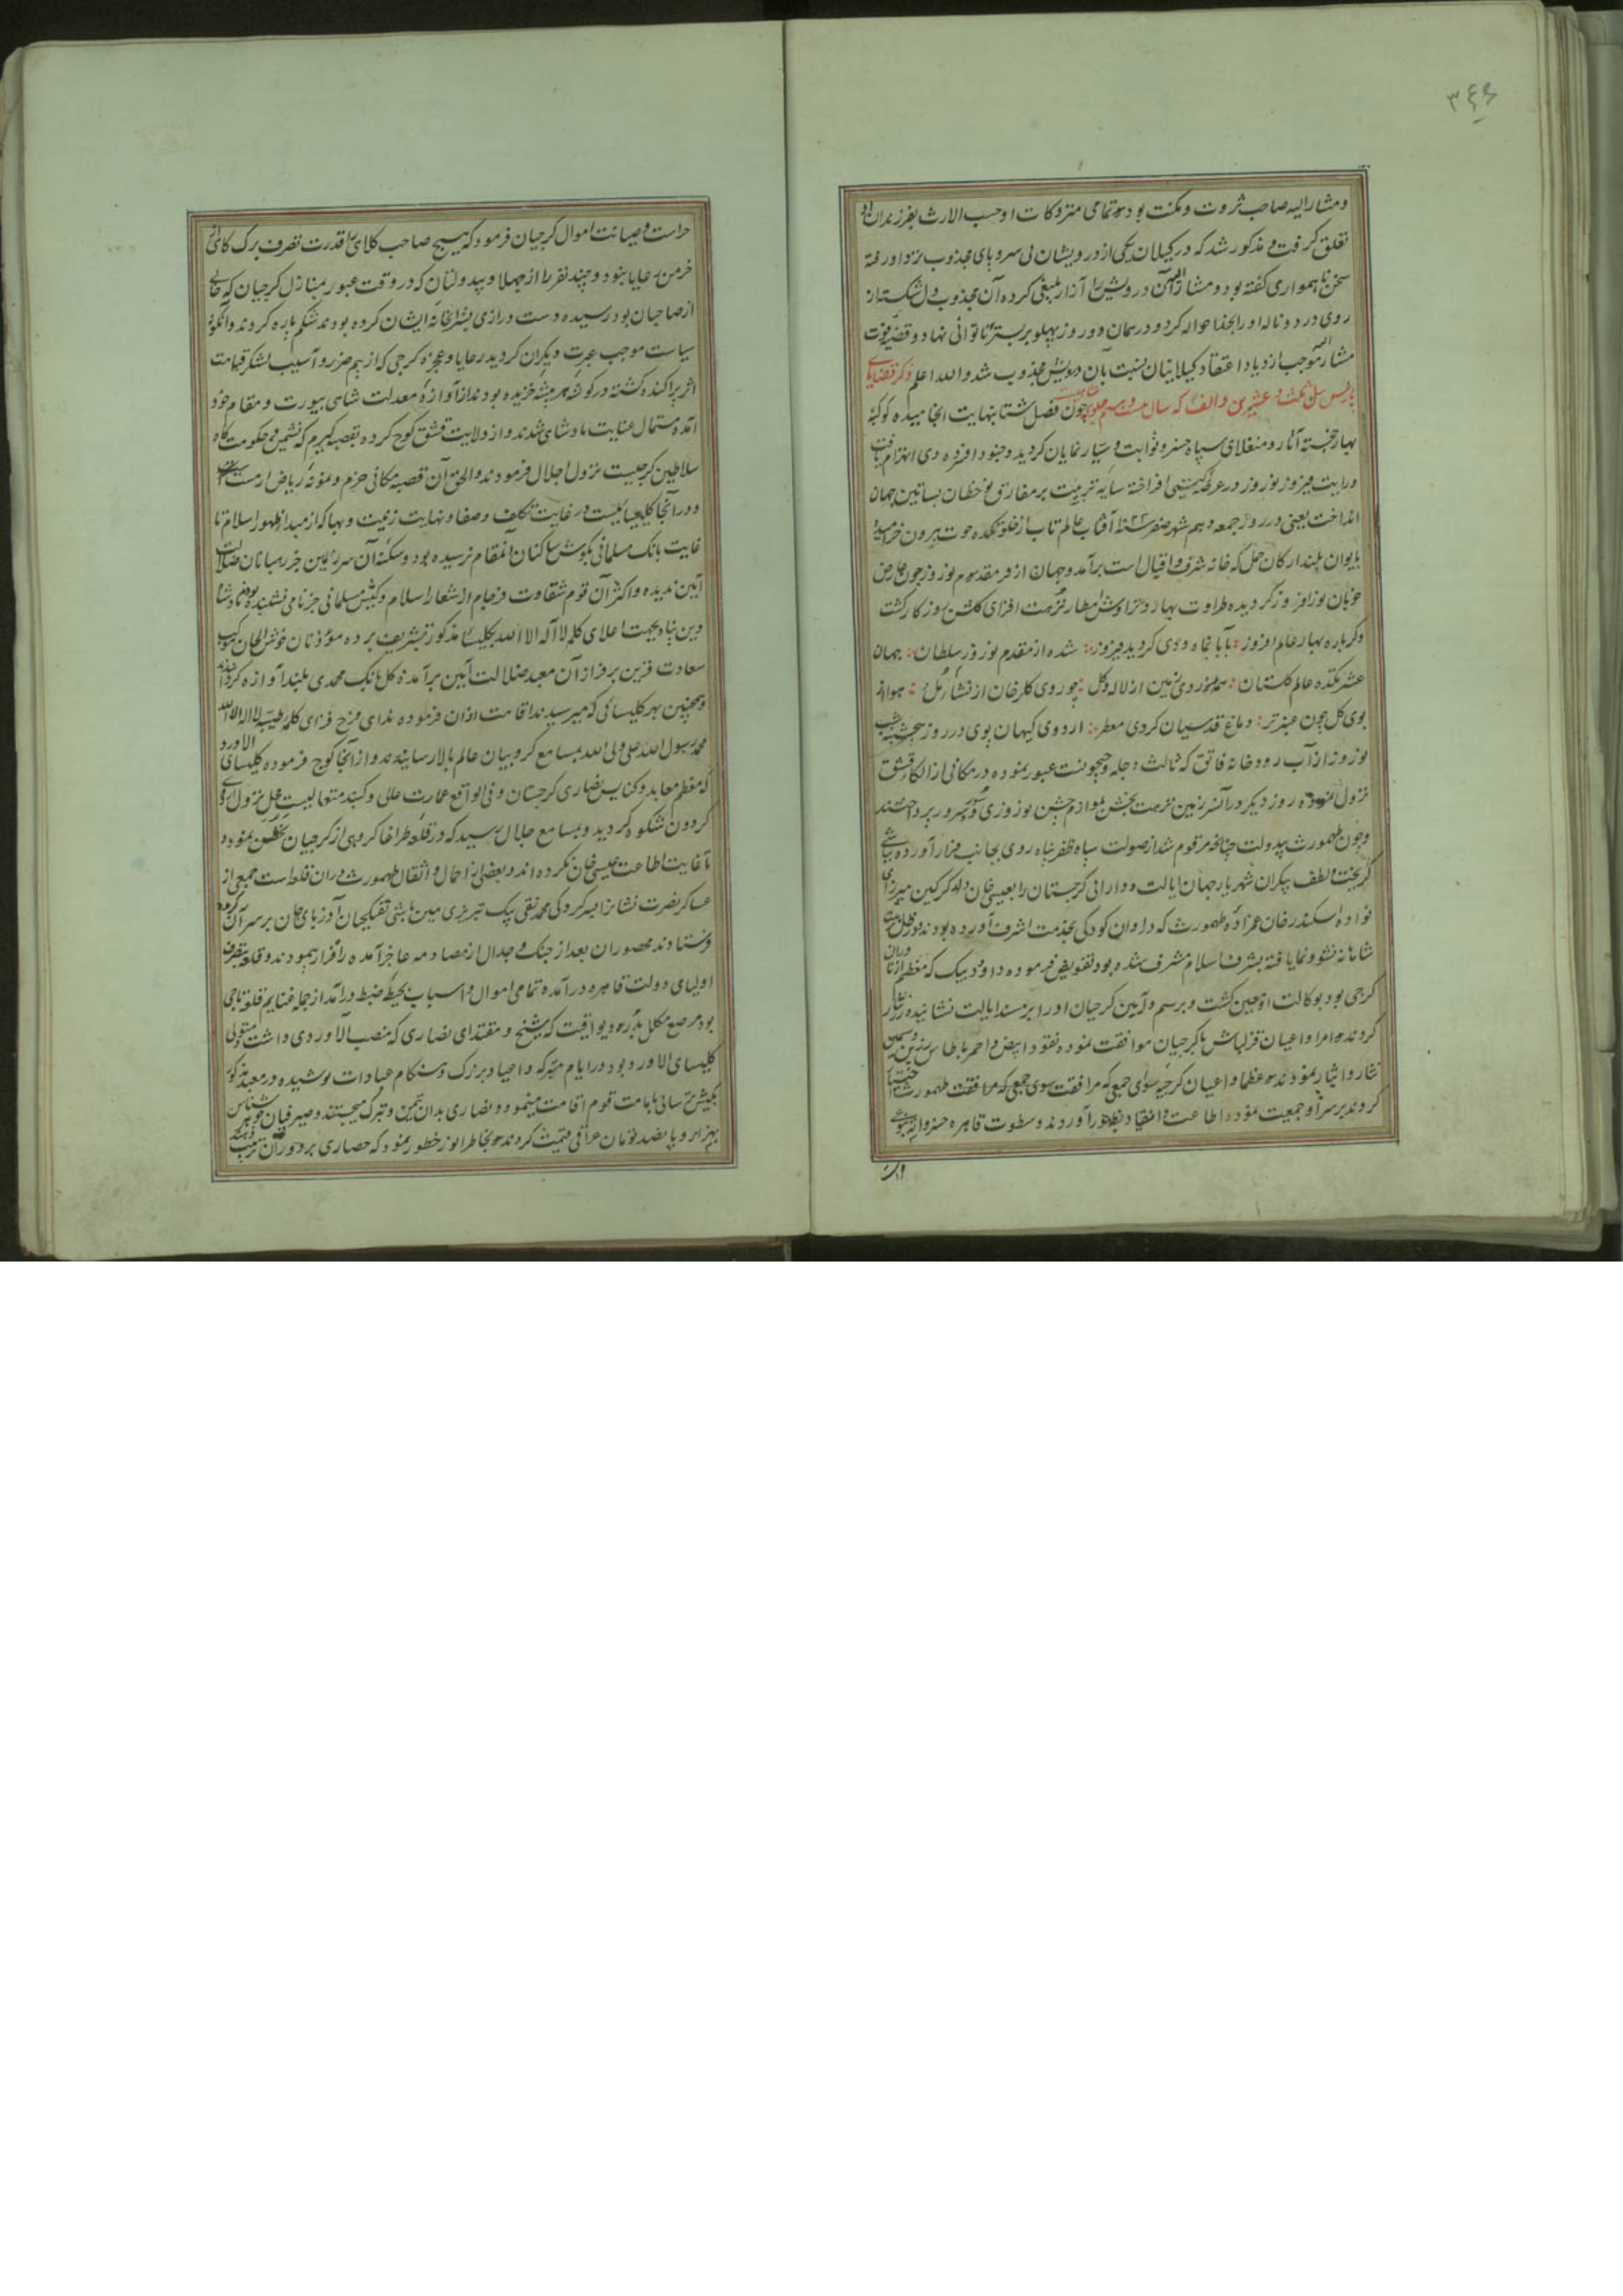 ۳۴۶
و مشارالیه صاحب ثروت و مکنت بود و تمامی متروکات او حسب الارث بفرزندان او
تعلق گرفت و مذکور شد که در کیلان یکی از درویشان بی سر و پای مجذوب نزد او رفته
سخن ناهمواری گفته بود و مشارالیه آن درویش را آزار بلیغی کرده آن مجذوب دل شکسته از
روی درد و ناله او را بخدا حواله کرد و در همان دو روز پهلو بر بستر ناتوانی نهاد و قضیه فوت
مشارالیه موجب ازدیاد اعتقاد کیلانیان نسبت بآن درویش مجذوب شد والله اعلم ذکر قضایای
بارس ئیل ثلث و عشرین و الف که سال بیست و هشتم جلوس چون فصل شتا بنهایت انجامیده کوکبه
بهار خجسته آثار و منغلای سپاه ثوابت و سیار نمایان کردید و جنود افسرده دی انهزام یافت
و رایت فیروز نوروز در عرصه کیتی افراخته سایه تربیت بر مفارق نوخطان بساتین جهان
انداخت یعنی در روز جمعه دهم شهر صفر آفتاب عالم تاب از خلوتکده حوت بیرون خرامیده
بایوان بلند ارکان حمل که خانه شرف و اقبال است برآمد و جهان از فر مقدوم نوروز چون عارض
خوبان نورافروز کردیده طراوت بهار و تراوش امطار نزهت افزای کلشن روزکار کشت
دکر باره بهار عالم افروز ؛ بآبا نماه و دی کردید فیروز ؛ شده از مقدم نوروز سلطان ؛ جهان
عشرتکده عالم کلستان ؛ همه روی زمین از لاله و کل ؛ چو روی کلرخان از نشأ مل ؛ هوا از
بوی کل چون عنبر تر ؛ دماغ قدسیان کردی معطر ؛ اردوی کیهان پوی در روز پنجشنبه
نوروز از آب رودخانه قانق که ثالث دجله و جیحونست عبور نموده در مکانی از الکاء قشق
نزول نموده روز دیکر در آن سرزمین نزهت بخش بلوازم جشن نوروزی و سرور پرداختند
و چون طهمورث بیدولت چنانچه مرقوم شد از صولت سپاه ظفر پناه روی بجانب فرار آورده
کریخت و لطف بیکران شهریار جهان ایالت و دارائی کرجستان را بعیسی خان ولد کرکین میرزای
نواده اسکندر خان عمزاده طهمورث که در اوان کودکی بخدمت اشرف آورده بودند و در ظل تربیت
شاهانه نشو و نما یافته بشرف اسلام مشرف شده بود تفویض فرموده داود بیک که معظم ازناوران
کرجی بود بوکالت او تعیین کشت و برسم و آیین کرجیان او را بر مسند ایالت نشانیده زر نثار
کردند و امرا و اعیان قزلباش با کرجیان موافقت نموده نقود ابیض و احمر با طاس زرین و سیمین
نثار و ایثار نمودند و عظما و اعیان کرجیه سوای جمعی که مرافقت طهمورث اختیار
کردند بر سر او جمعیت نموده اطاعت و انقیاد بظهور آوردند و سطوت قاهره خسروانه
حراست و صیانت اموال کرجیان فرمود که هیچ صاحب کلاهی را قدرت تصرف برک کاهی از
خرمن رعایا نبود و چند نفر را از جهلا و بیدولتان که در وقت عبور بمنازل کرجیان که خالی
از صاحبان بود رسیده دست درازی بشرابخانه ایشان کرده بودند شکم پاره کردند و اینکونه
سیاست موجب عبرت دیکران کردید رعایا و عجزه کرجی که از بیم ضرر و آسیب لشکر قیامت
اثر پراکنده کشته در کوشه هر بیشه خزیده بودند از آوازه معدلت شاهی بیورت و مقام خود
آمده مستمال عنایت پادشاهی شدند و از ولایت قشق کوچ کرده بقصبه کیرم که نشیمن و حکومتکاه
سلاطین کرجیست نزول اجلال فرمودند و الحق آن قصبه مکانی خرم و نمونه ریاض ارم است
و در آنجا کلیسیائیست در غایت تکلف و صفا و نهایت زینت و بها که از مبدا ظهور اسلام تا
غایت بانک مسلمانی بکوش ساکنان آنمقام نرسیده بود و سکنه آن سرزمین جز رهبانان ضلالت
آیین ندیده و اکثر آن قوم شقاوت فرجام از شعار اسلام و کیش مسلمانی جز نامی نشنیده بودند پادشاه
دین پناه بجهت اعلای کلمه لا اله الا الله بکلیسیا مذکور تشریف برده مؤذنان خوش الحان موکب
سعادت قرین بر فراز آن معبد ضلالت آیین برآمده کل بانک محمدی بلند آوازه کردانیدند
و همچنین بهر کلیسائی که میرسیدند اقامت اذان فرموده ندای فرح فزای کلمه طیبه لا اله الا الله
محمد رسول الله علی ولی الله بمسامع کروبیان عالم بالا رسانیدند و از آنجا کوچ فرموده کلیسای الاورد
که معظم معابد و کنایس نصاری کرجستان و فی الواقع عمارت عالی و کنبد متعالیست محل نزول اردوی
کردون شکوه کردید و بمسامع جلال رسید که در قلعه طراغا کروهی از کرجیان تحصن نموده
تا غایت اطاعت عیسی خان نکرده اند و بعضی از احمال و اثقال طهمورث در آن قلعه است جمعی از
عساکر نصرت نشان را بسرکردکی محمد تقی بیک تبریزی مین باشی تفنکچیان آذربایجان بر سر آن کروه
فرستادند محصوران بعد از جنک و جدال از مصادمه عاجز آمده راه فرار پیمودند و قلعه بتصرف
اولیای دولت قاهره درآمده تمامی اموال و اسباب بحیطه ضبط درآمد از جمله غنایم قلعه تاجی
بود مرصع مکلل بدرر و یواقیت که شیخ و مقتدای نصاری که منصب الاوردی داشت و متولی
کلیسای الاورد بود در ایام متبرکه و اعیاد بزرک و هنکام عبادات پوشیده در معبد مذکور
بکیش ترسائی بامامت قوم اقامت مینمود و نصاری بدان تیمن و تبرک میجستند و صیرفیان جوهر شناس
بهزار و پانصد تومان عراقی قیمت کردند و بخاطر انور خطور نمود که حصاری بر دور آن